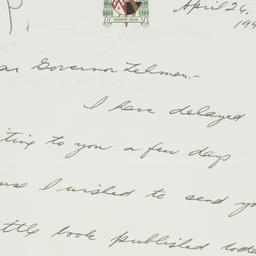 April 26,
194
ar Governor Lehman:-
I have delayed
ting to you a few days
use I wished to send yo
ittle book published toda